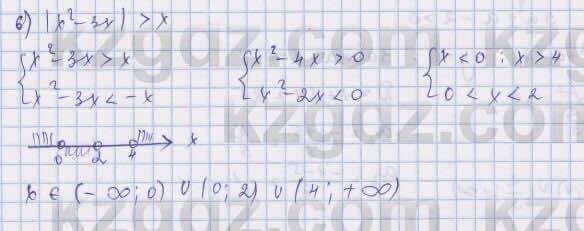 б) |x² - 3x| > x
{ x² - 3x > x { x² - 4x > 0 { x < 0 ; x > 4
{ x² - 3x < -x { x² - 2x < 0 { 0 < x < 2
0 2 4 x
x ∈ (-∞; 0) ∪ (0; 2) ∪ (4; +∞)
kzgdz.com